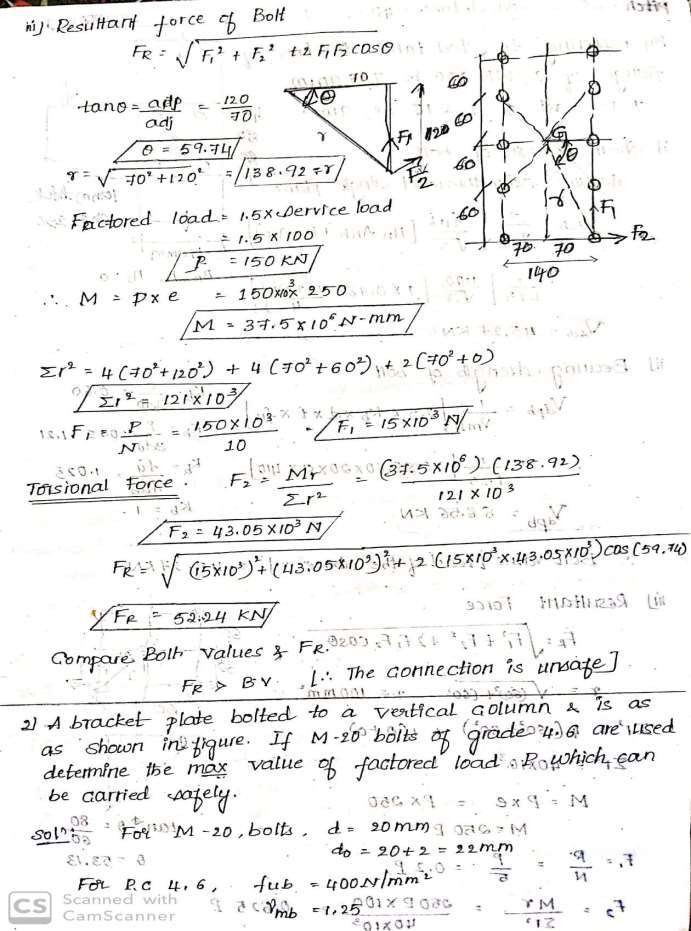 iii) Resultant force of Bolt
FR = √F₁² + F₂² + 2 F₁F₂ cosθ
tanθ = adp/adj = 120/70
θ = 59.74
r = √70² + 120² = 138.92 = r
70
θ
r
120
F₁
F₂
60
60
60
60
G
θ
r
F₁
F₂
70 70
140
Factored load = 1.5 x Service load
= 1.5 x 100
P = 150 KN
∴ M = P x e = 150x10³x 250
M = 37.5 x 10⁶ N-mm
Σr² = 4(70²+120²) + 4(70²+60²) + 2(70²+0)
Σr² = 121x10³
F₁ = P/N = 150x10³/10 = F₁ = 15x10³ N
Torsional Force. F₂ = Mr/Σr² = (37.5x10⁶)(138.92)/121 x 10³
F₂ = 43.05x10³ N
FR = √(15x10³)² + (43.05x10³)² + 2(15x10³x43.05x10³)cos(59.74)
FR = 52.24 KN
Compare Bolt values & FR.
FR > BV. [∴ The connection is unsafe]
2) A bracket plate bolted to a vertical column & is as
as shown in figure. If M-20 bolts of grade 4.6 are used
determine the max value of factored load P which can
be carried safely.
soln: For M-20, bolts, d = 20mm
do = 20+2 = 22mm
For P.C 4.6, fub = 400N/mm²
γmb = 1.25
CS Scanned with
CamScanner